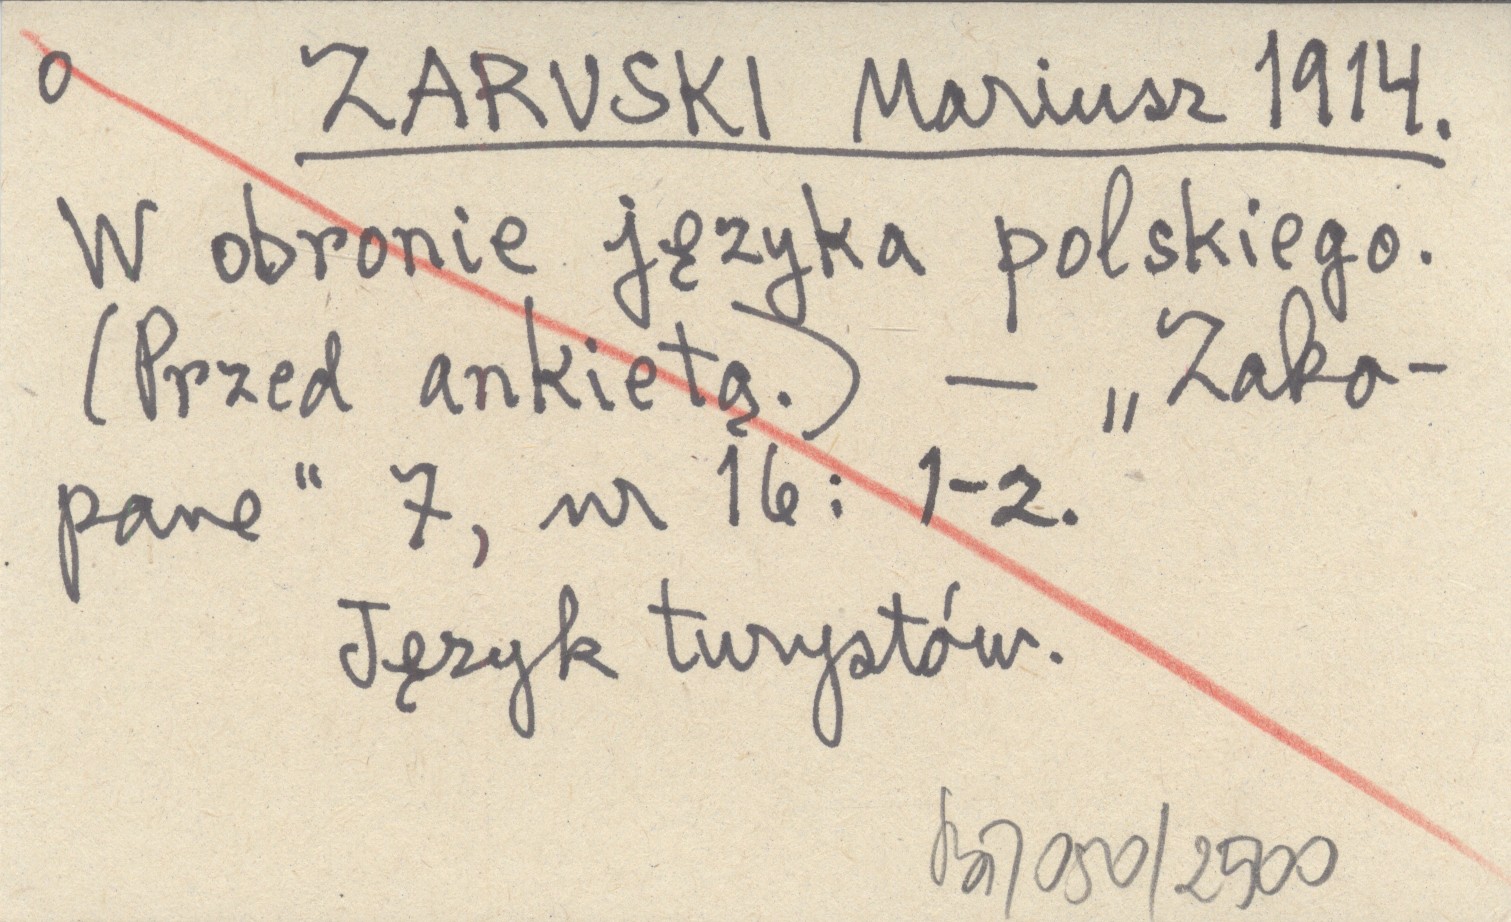 o ZARUSKI Mariusz 1914.
W obronie języka polskiego.
(Przed ankietą.) — „Zako-
pane“ 7, nr 16: 1-2.
Język turystów.
050/2500